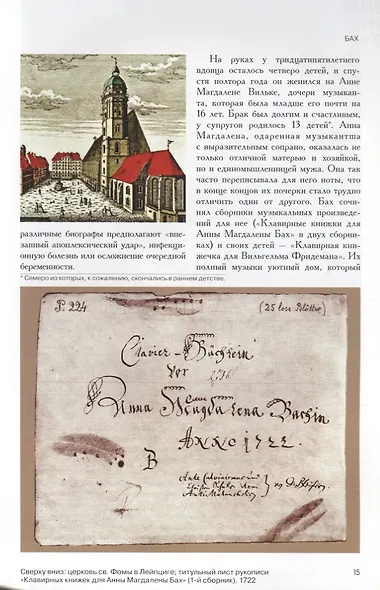 БАХ
различные биографы предполагают «вне-
запный апоплексический удар», инфекци-
онную болезнь или осложнение очередной
беременности.
На руках у тридцатипятилетнего
вдовца осталось четверо детей, и спу-
стя полтора года он женился на Анне
Магдалене Вильке, дочери музыкан-
та, которая была младше его почти на
16 лет. Брак был долгим и счастливым,
у супругов родилось 13 детей*. Анна
Магдалена, одаренная музыкантша
с выразительным сопрано, оказалась не
только отличной матерью и хозяйкой,
но и единомышленницей мужа. Она так
часто переписывала для него ноты, что
в конце концов их почерки стало трудно
отличить один от другого. Бах сочи-
нял сборники музыкальных произведе-
ний для нее («Клавирные книжки для
Анны Магдалены Бах» в двух сборни-
ках) и своих детей – «Клавирная
книжечка для Вильгельма Фридемана». Их
полный музыки уютный дом, который
* Семеро из которых, к сожалению, скончались в раннем детстве.
P. 224
(25 lose Blätter)
Clavier-Büchlein
vor
Anna Magdalena Bachin
ANNO 1722.
Сверху вниз: церковь св. Фомы в Лейпциге; титульный лист рукописи
«Клавирных книжек для Анны Магдалены Бах» (1-й сборник). 1722
15